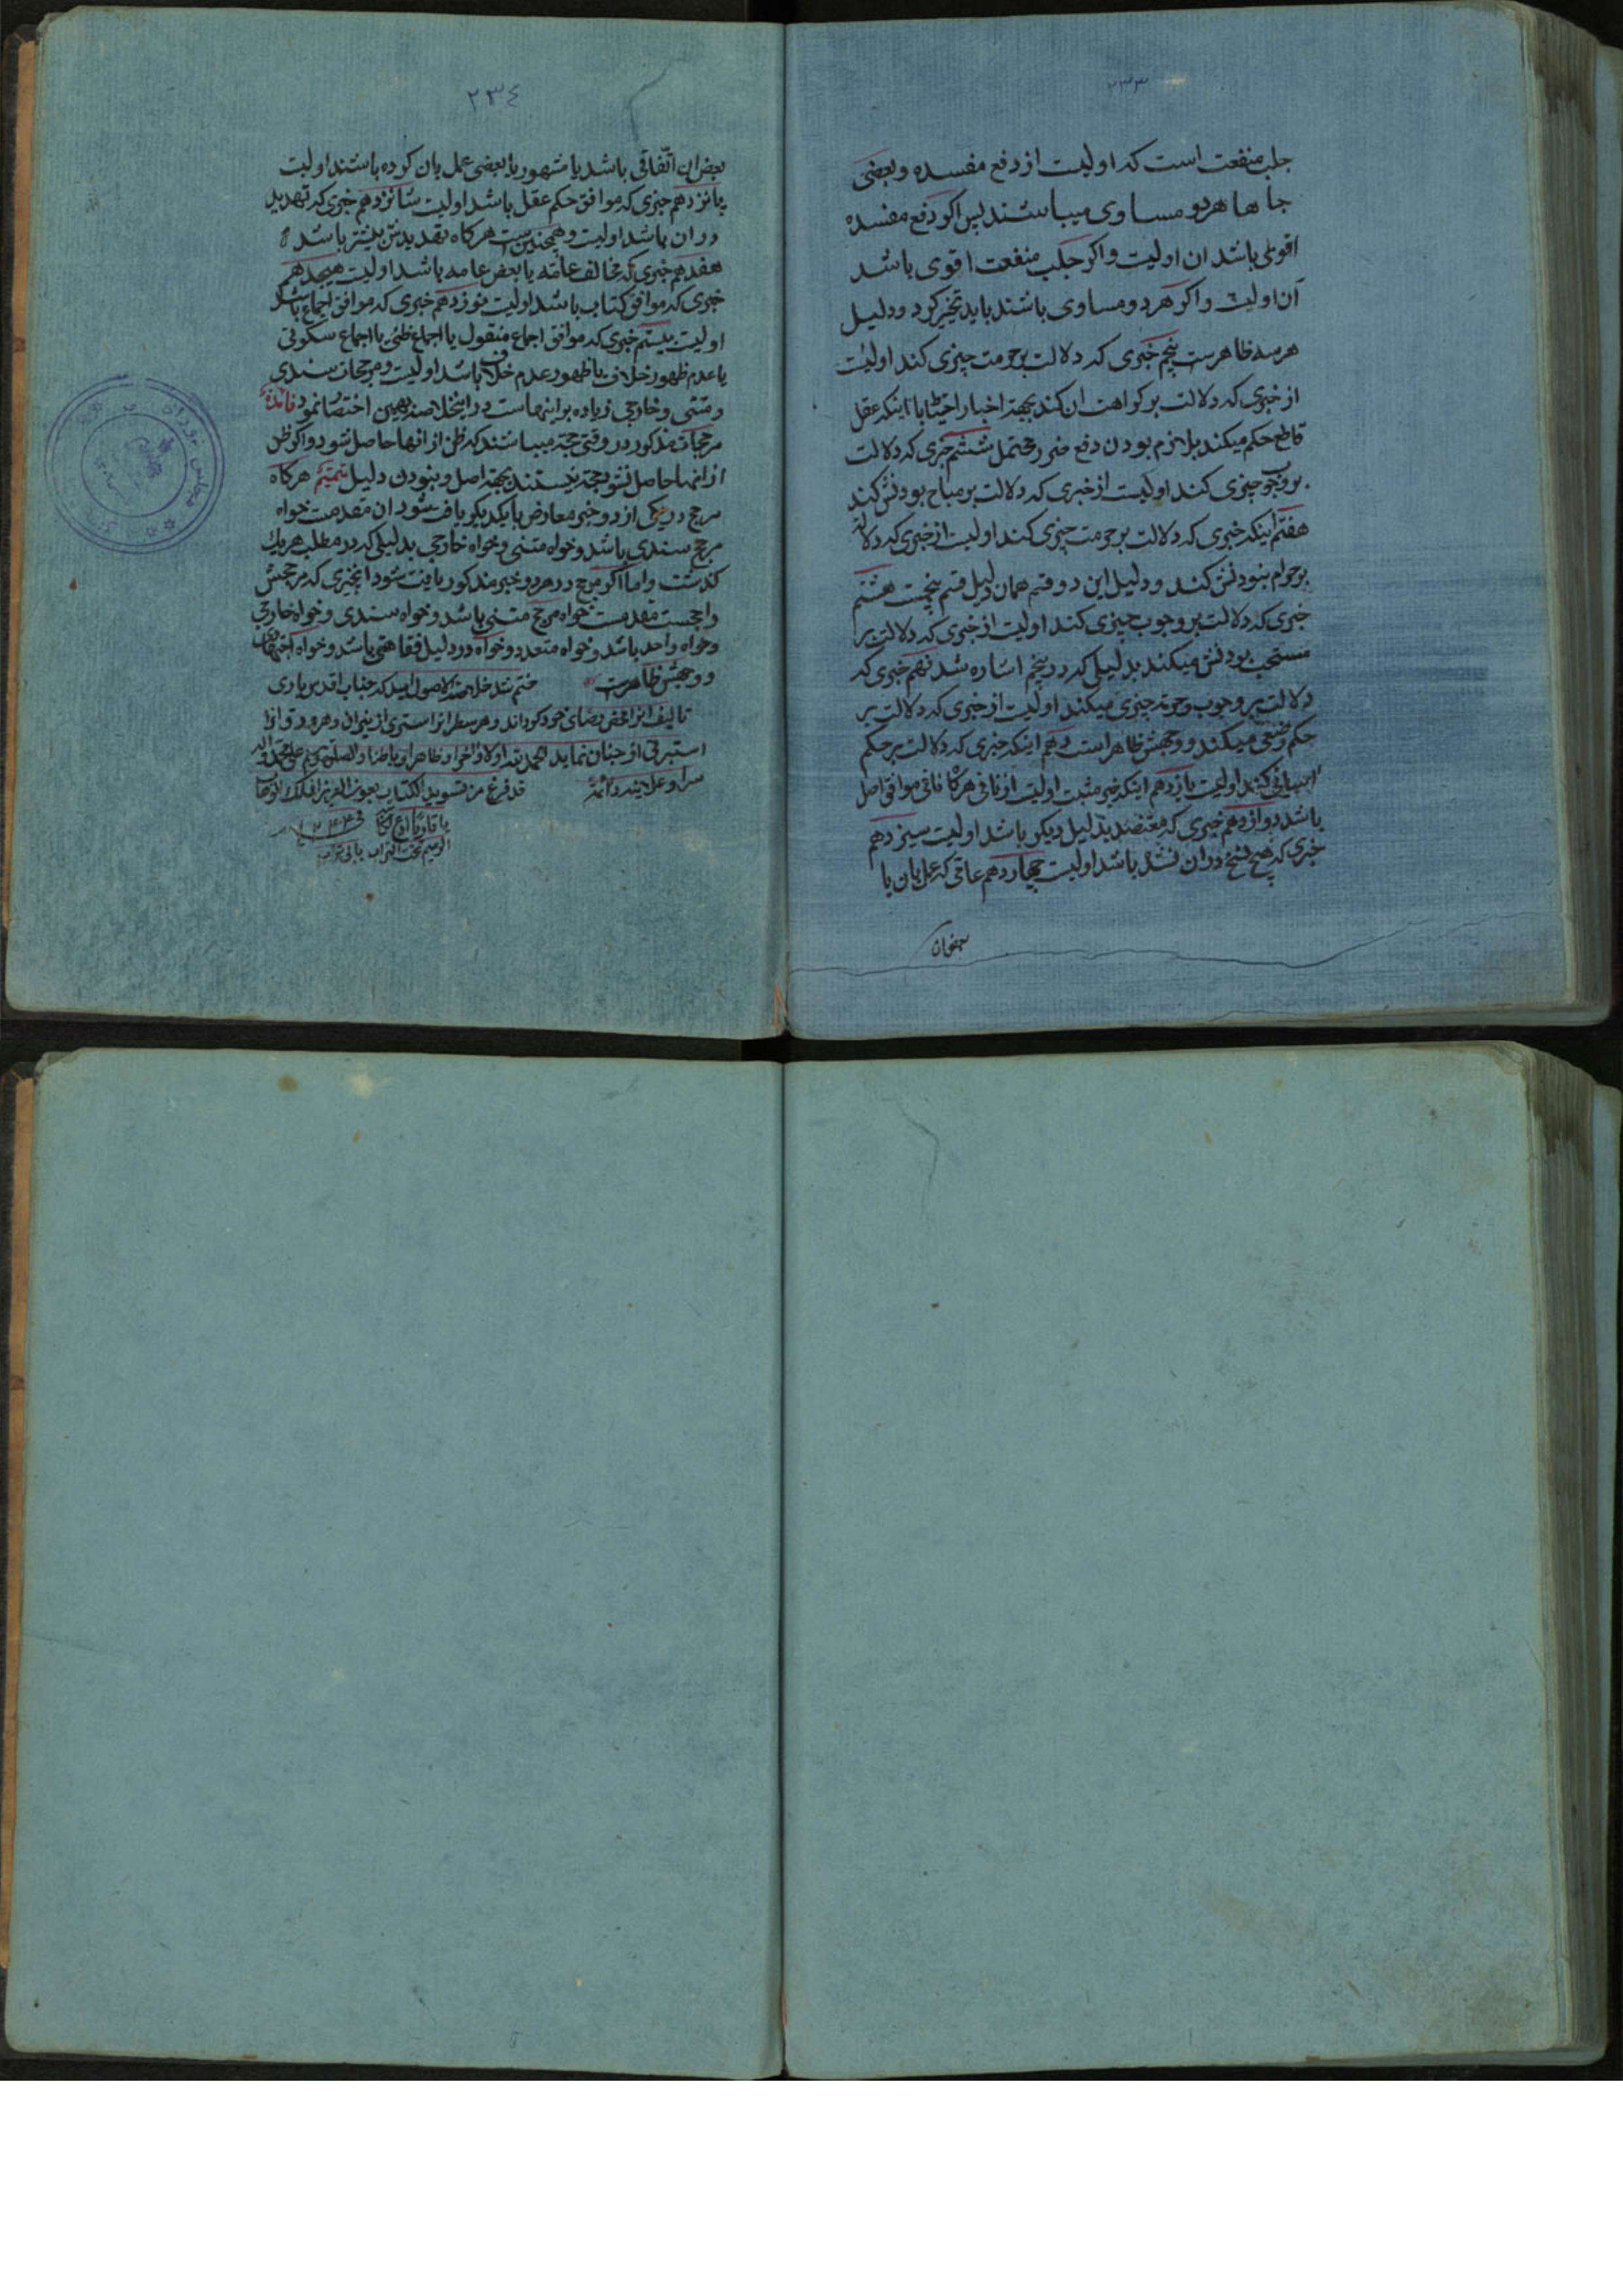 ٢٣٣
جلب منفعت است که اولیست از دفع مفسده و بعضی
جاها هر دو مساوی میباشند پس اکر دفع مفسده
اقوی باشد ان اولیست و اکر جلب منفعت اقوی باشد
آن اولیست و اکر هر دو مساوی باشند باید تخییر کرد و دلیل
هر سه ظاهرست پنجم خبری که دلالت بر حرمت چیزی کند اولیست
از خبری که دلالت بر کراهت ان کند بجهة اخبار احتیاط با اینکه عقل
قاطع حکم میکند بلازم بودن دفع ضرر محتمل ششم خبری که دلالت
بر وجوب چیزی کند اولیست از خبری که دلالت بر مباح بودنش کند
هفتم اینکه خبری که دلالت بر حرمت چیزی کند اولیست از خبری که دلالة
بر حرام نبودنش کند و دلیل این دو قسم همان دلیل قسم پنجست هشتم
خبری که دلالت بر وجوب چیزی کند اولیست از خبری که دلالت بر
مستحب بودنش میکند بدلیلی که در پنجم اشاره شد نهم خبری که
دلالت بر وجوب و حرمة چیزی میکند اولیست از خبری که دلالت بر
حکم وضعی میکند و وجهش ظاهر است دهم اینکه خبری که دلالت بر حکم
کند اولیست یازدهم اینکه خبر مثبت اولیست از نافی هرکاه نافی موافق اصل
باشد دوازدهم خبری که معتضد بدلیل دیکر باشد اولیست سیزدهم
خبری که هیچ نسخ در ان نشده باشد اولیست چهاردهم عامی که عمل بان یا
٢٣٤
بعض ان اتّفاقی باشد یا مشهور یا بعضی عمل بان کرده باشند اولیست
پانزدهم خبری که موافق حکم عقل باشد اولیست شانزدهم خبری که تهدید
در ان باشد اولیست و همچنین است هرکاه تهدیدش بیشتر باشد
هفدهم خبری که مخالف عامّه یا بعض عامه باشد اولیست هیجدهم
خبری که موافق کتاب باشد اولیست نوزدهم خبری که موافق اجماع باشد
اولیست بیستم خبری که موافق اجماع منقول یا اجماع ظنّی یا اجماع سکوتی
یا عدم ظهور خلاف یا ظهور عدم خلاف باشد اولیست و مرجحات سندی
و متنی و خارجی زیاده بر اینهاست در این خلاصه بهمین اختصار نمود فائدة
مرجحات مذکوره در وقتی حجة میباشند که ظن از انها حاصل شود و اکر ظن
از انها حاصل نشود حجة نیستند بجهة اصل و نبودن دلیل تتمیم هرکاه
مرجح در یکی از دو خبر معارض با یکدیکر یافت شود ان مقدمست خواه
مرجح سندی باشد و خواه متنی و خواه خارجی بدلیلی که در مطلب هر یک
کذشت و اما اکر مرجح در هر دو خبر مذکور یافت شود انخبری که مرجحش
راجحست مقدمست خواه مرجح متنی باشد و خواه سندی و خواه خارجی
و خواه واحد باشد و خواه متعدد و خواه در دلیل فقاهتی باشد و خواه اجتهادی
و وجهش ظاهرست ختم شد خلاصة الاصول امید که جناب اقدس باری
تالیف انرا محض رضای خود کرداند و هر سطر انرا استری از نیران و هر ورق انرا
استبرقی از جنان نماید الحمد لله اولا و اخرا و ظاهرا و باطنا و السلام علی محمد و اله
سرا و علانیة قد فرغ من تسوید الکتاب بعون العزیز الملک الوهاب
١٢٤٣
تحت التراب